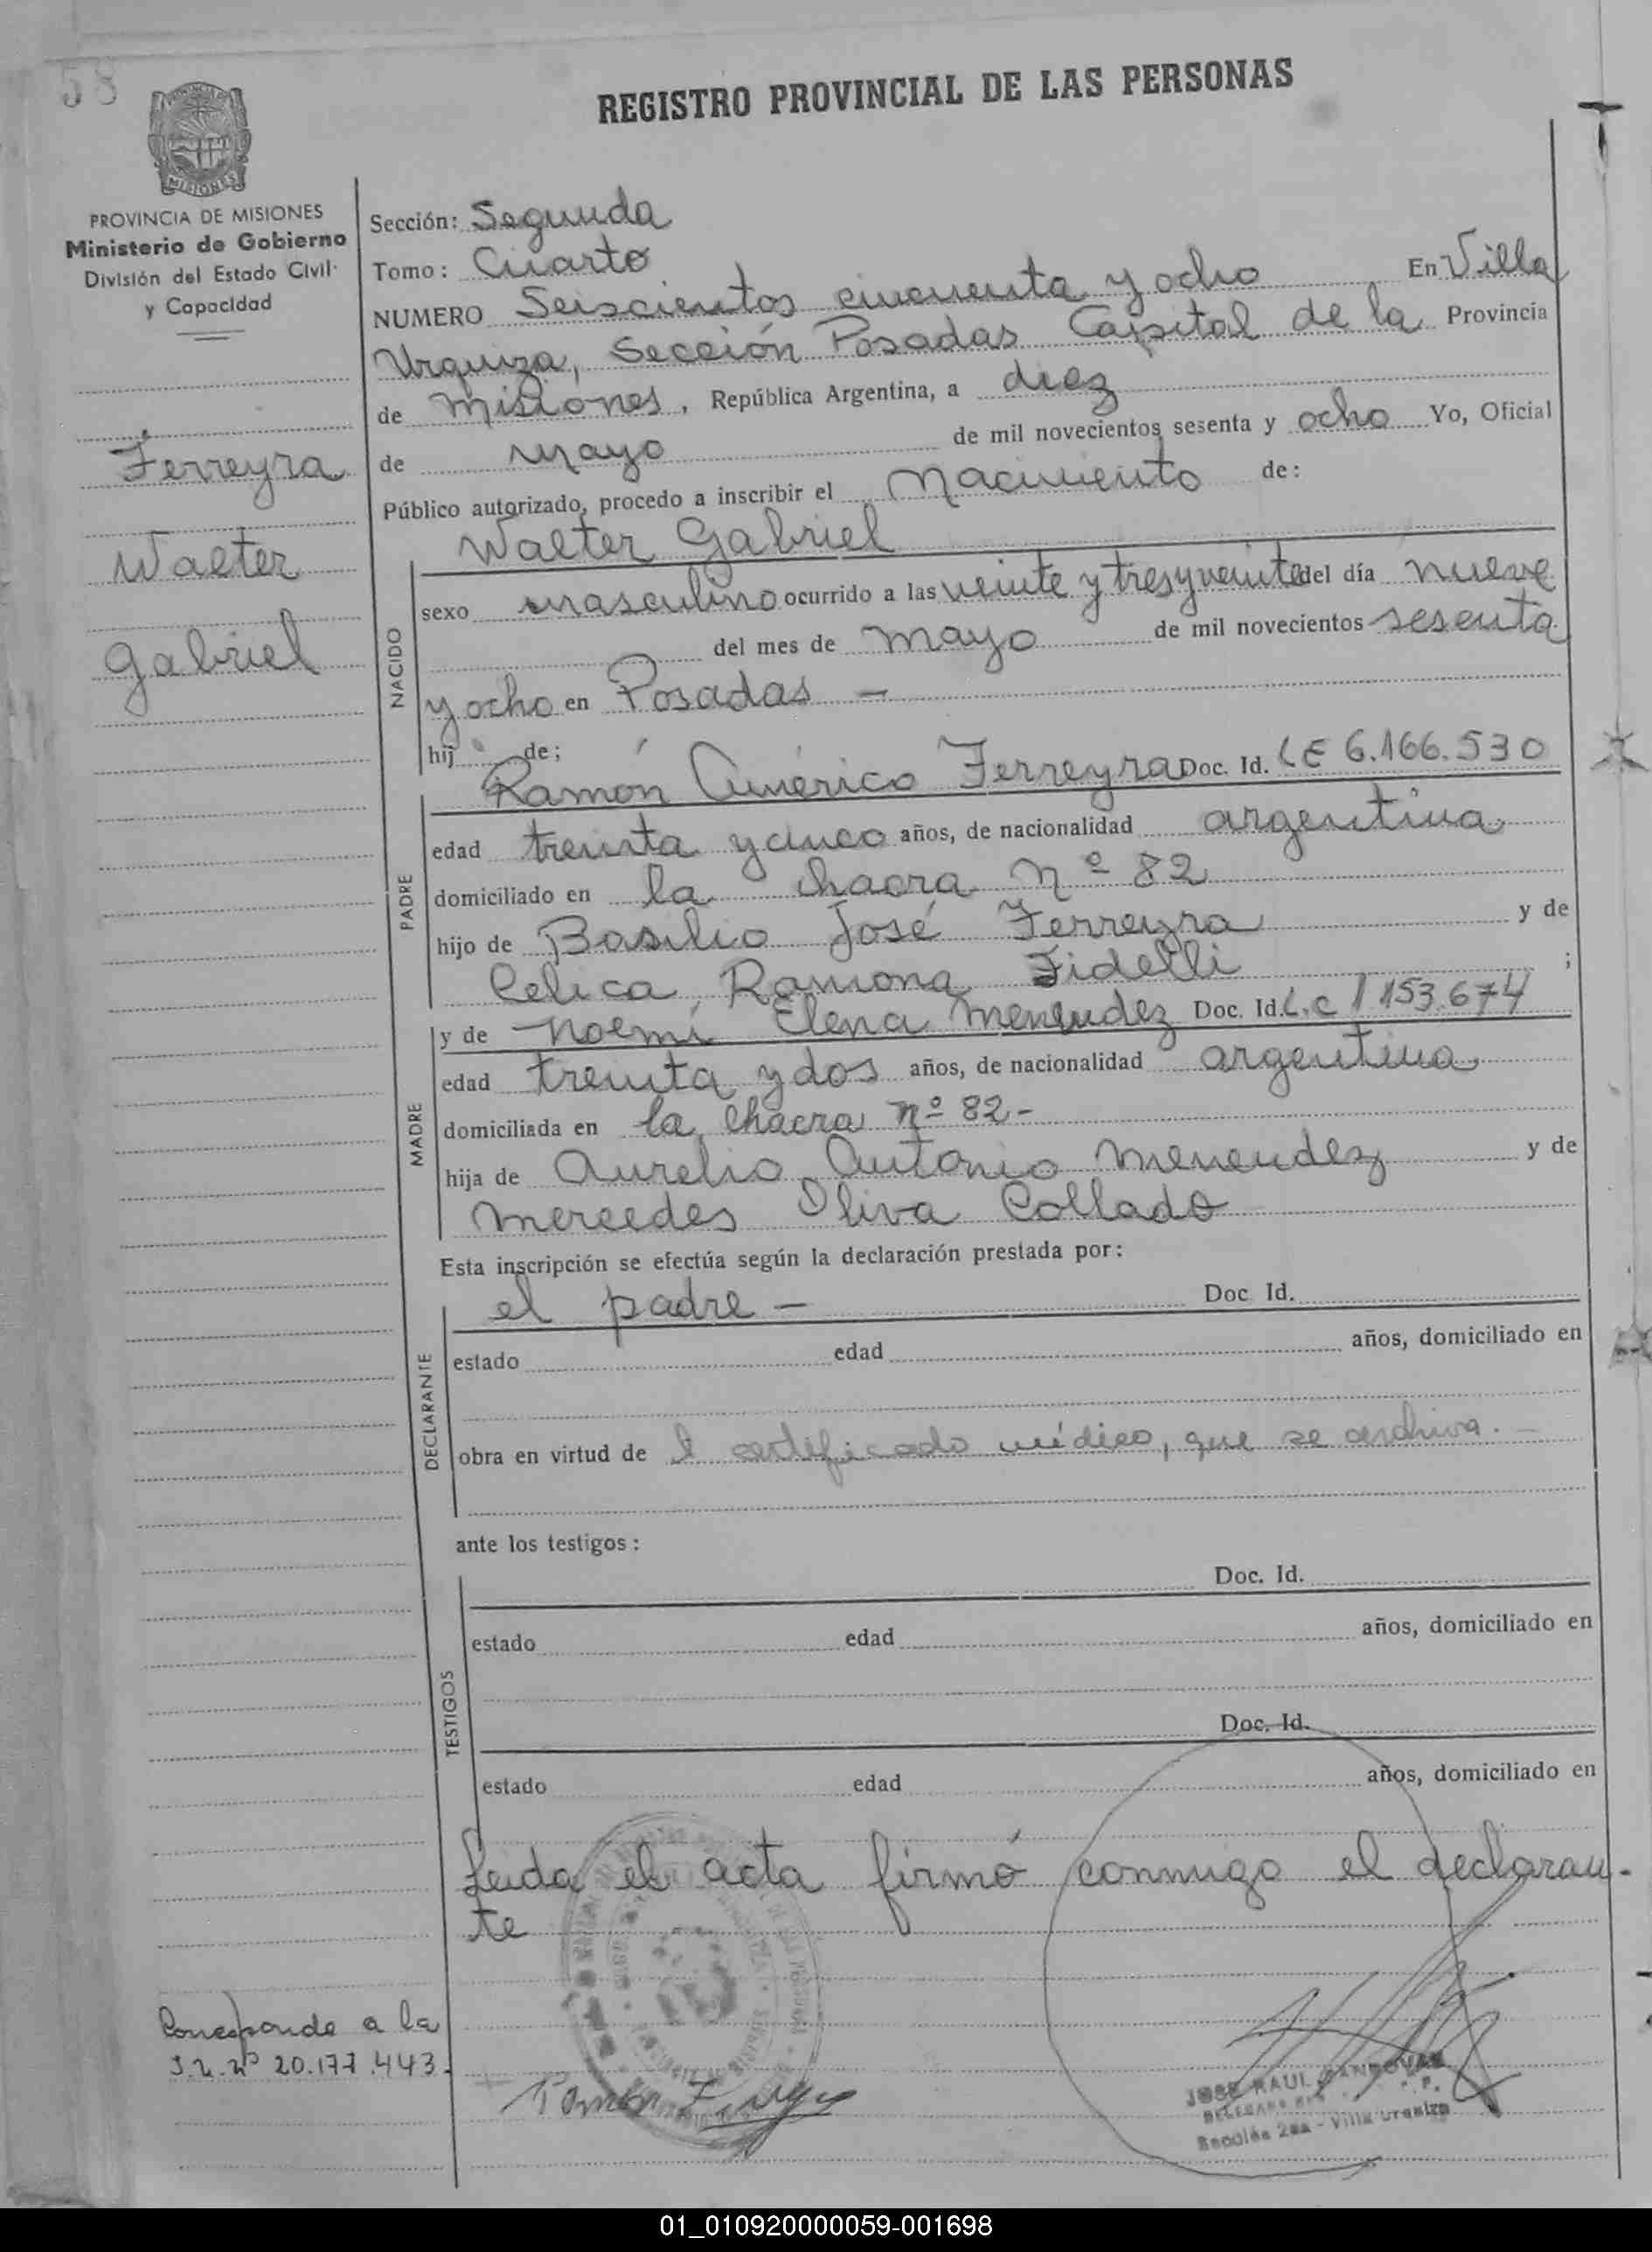 58
REGISTRO PROVINCIAL DE LAS PERSONAS
PROVINCIA DE MISIONES
Ministerio de Gobierno
División del Estado Civil
y Capacidad
Ferreyra
Walter
Gabriel
Sección: Segunda
Tomo: Cuarto
NUMERO Seiscientos cincuenta y ocho En Villa
Urquiza, Sección Posadas Capital de la Provincia
de Misiones, República Argentina, a diez
de mayo de mil novecientos sesenta y ocho Yo, Oficial
Público autorizado, procedo a inscribir el Nacimiento de:
Walter Gabriel
NACIDO
sexo masculino ocurrido a las veinte y tres y veinte del día nueve
del mes de mayo de mil novecientos sesenta
y ocho en Posadas -
hij de;
Ramón Américo Ferreyra Doc. Id. LE 6.166.530
PADRE
edad treinta y cinco años, de nacionalidad argentina
domiciliado en la chacra Nº 82
hijo de Basilio José Ferreyra y de
Celica Ramona Fidelli ;
y de Noemí Elena Menendez Doc. Id. L.C 1.153.674
MADRE
edad treinta y dos años, de nacionalidad argentina
domiciliada en la chacra nº 82-
hija de Aurelio Antonio Menendez y de
Mercedes Oliva Collado
Esta inscripción se efectúa según la declaración prestada por:
el padre - Doc Id.
DECLARANTE
estado edad años, domiciliado en
obra en virtud de l certificado médico, que se archiva.-
ante los testigos:
Doc. Id.
TESTIGOS
estado edad años, domiciliado en
Doc. Id.
estado edad años, domiciliado en
Leida el acta firmó conmigo el declaran-
te
Corresponde a la
nº 20.177.443.
JOSE RAUL SANDOVAL
Sección 2da - Villa Urquiza
01_010920000059-001698